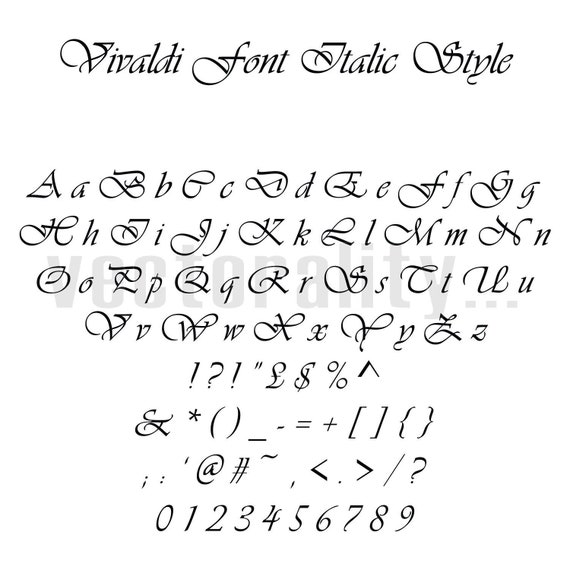 Vivaldi Font Italic Style
A a B b C c D d E e F f G g
H h I i J j K k L l M m N n
O o P p Q q R r S s T t U u
vectorality...
V v W w X x Y y Z z
! ? ! " £ $ % ^
& * ( ) _ - = + [ ] { }
; : ' @ # ~ , < . > / ?
0 1 2 3 4 5 6 7 8 9